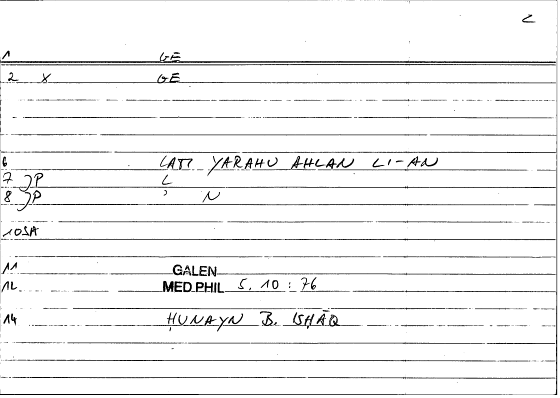 2
1 GE
2 X GE
6 LAM YARAHU AHLAN LI-AN
7 )P L
8 )P ʾ N
10 SA
11 GALEN
12 MED.PHIL 5, 10 : 76
14 ḤUNAYN B. ISḤĀQ